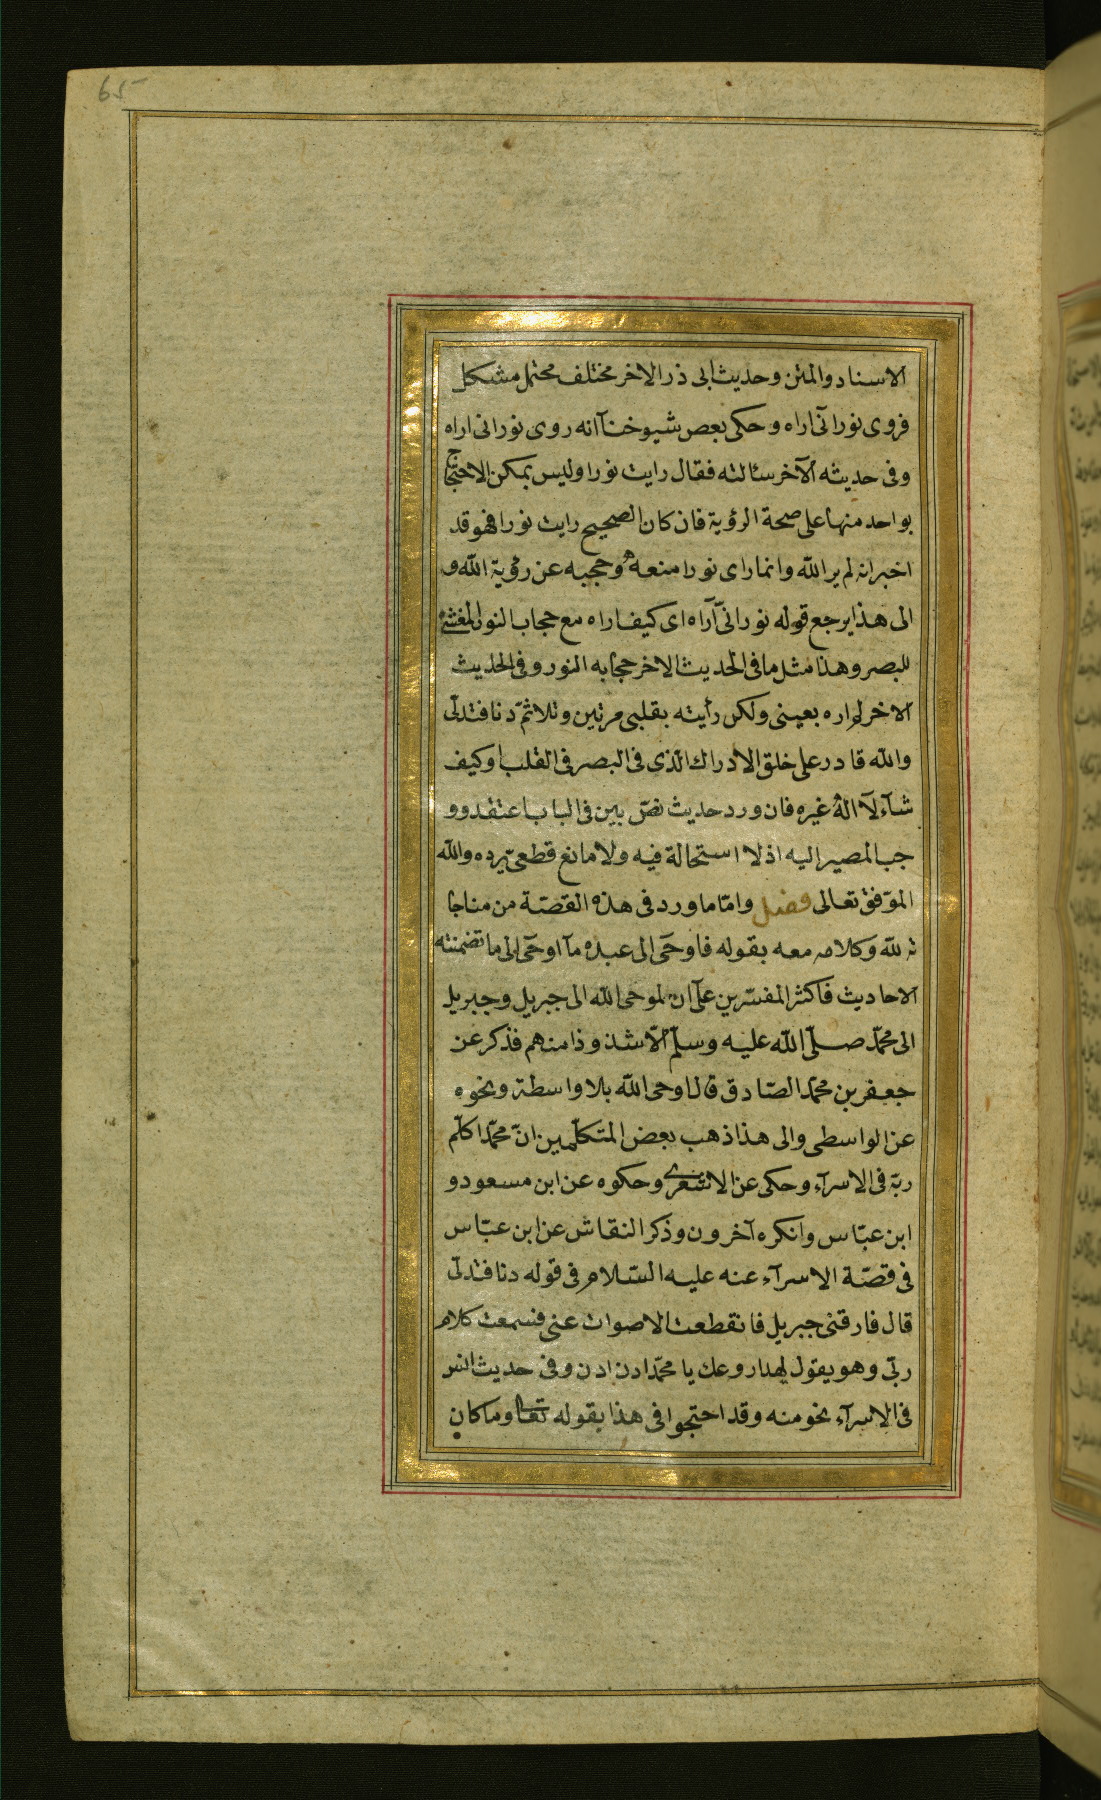 65
الاسناد والمتن وحديث ابى ذر الاخر مختلف محتمل مشكل
فروى نور انّى اراه وحكى بعض شيوخنا انه روى نورانى اراه
وفى حديثه الآخر سئالته فقال رايت نورا وليس يمكن الاحتجا
بواحد منها على صحة الرؤية فان كان الصحيح رايت نورا فهو قد
اخبر انه لم ير الله وانما راى نورا منعه وحجبه عن رؤية الله و
الى هذا يرجع قوله نور انّى آراه اى كيف اراه مع حجاب النور المغشى
للبصر وهذا مثل ما فى الحديث الاخر حجابه النور وفى الحديث
الاخر لم اره بعينى ولكن رأيته بقلبى مرتين وتلا ثمّ دنا فتدلّى
والله قادر على خلق الادراك الّذى فى البصر فى القلب او كيف
شآء لآ الهٔ غيره فان ورد حديث نصّ بين فى الباب اعتقد وو
جب المصير اليه اذ لا استحالة فيه ولا مانع قطعىّ يرده والله
الموّفق تعالى فصل وامّا ما ورد فى هذه القصّة من مناجا
ته لله وكلامه معه بقوله فاوحى الى عبده مآ اوحى الى ما تضمنته
الاحاديث فاكثر المفسّرين على ان الموحى الله الى جبريل وجبريل
الى محمّد صلّى الله عليه وسلّم الّا شذوذا منهم فذكر عن
جعفر بن محمّد الصّادق قال اوحى الله بلا واسطة ونحوه
عن الواسطى والى هذا ذهب بعض المتكلّمين انّ محمّدا كلّم
ربّه فى الاسرآء وحكى عن الاشعرى وحكوه عن ابن مسعود و
ابن عبّاس وانكره آخرون وذكر النقاش عن ابن عبّاس
فى قصّة الاسرآء عنه عليه السّلام فى قوله دنا فتدلّى
قال فارقنى جبريل فانقطعت الاصوات عنى فسمعت كلام
ربّى وهو يقول ليهدا روعك يا محمّد ادن ادن وفى حديث انس
فى الاسرآء نحو منه وقد احتجوا فى هذا بقوله تعا وما كان